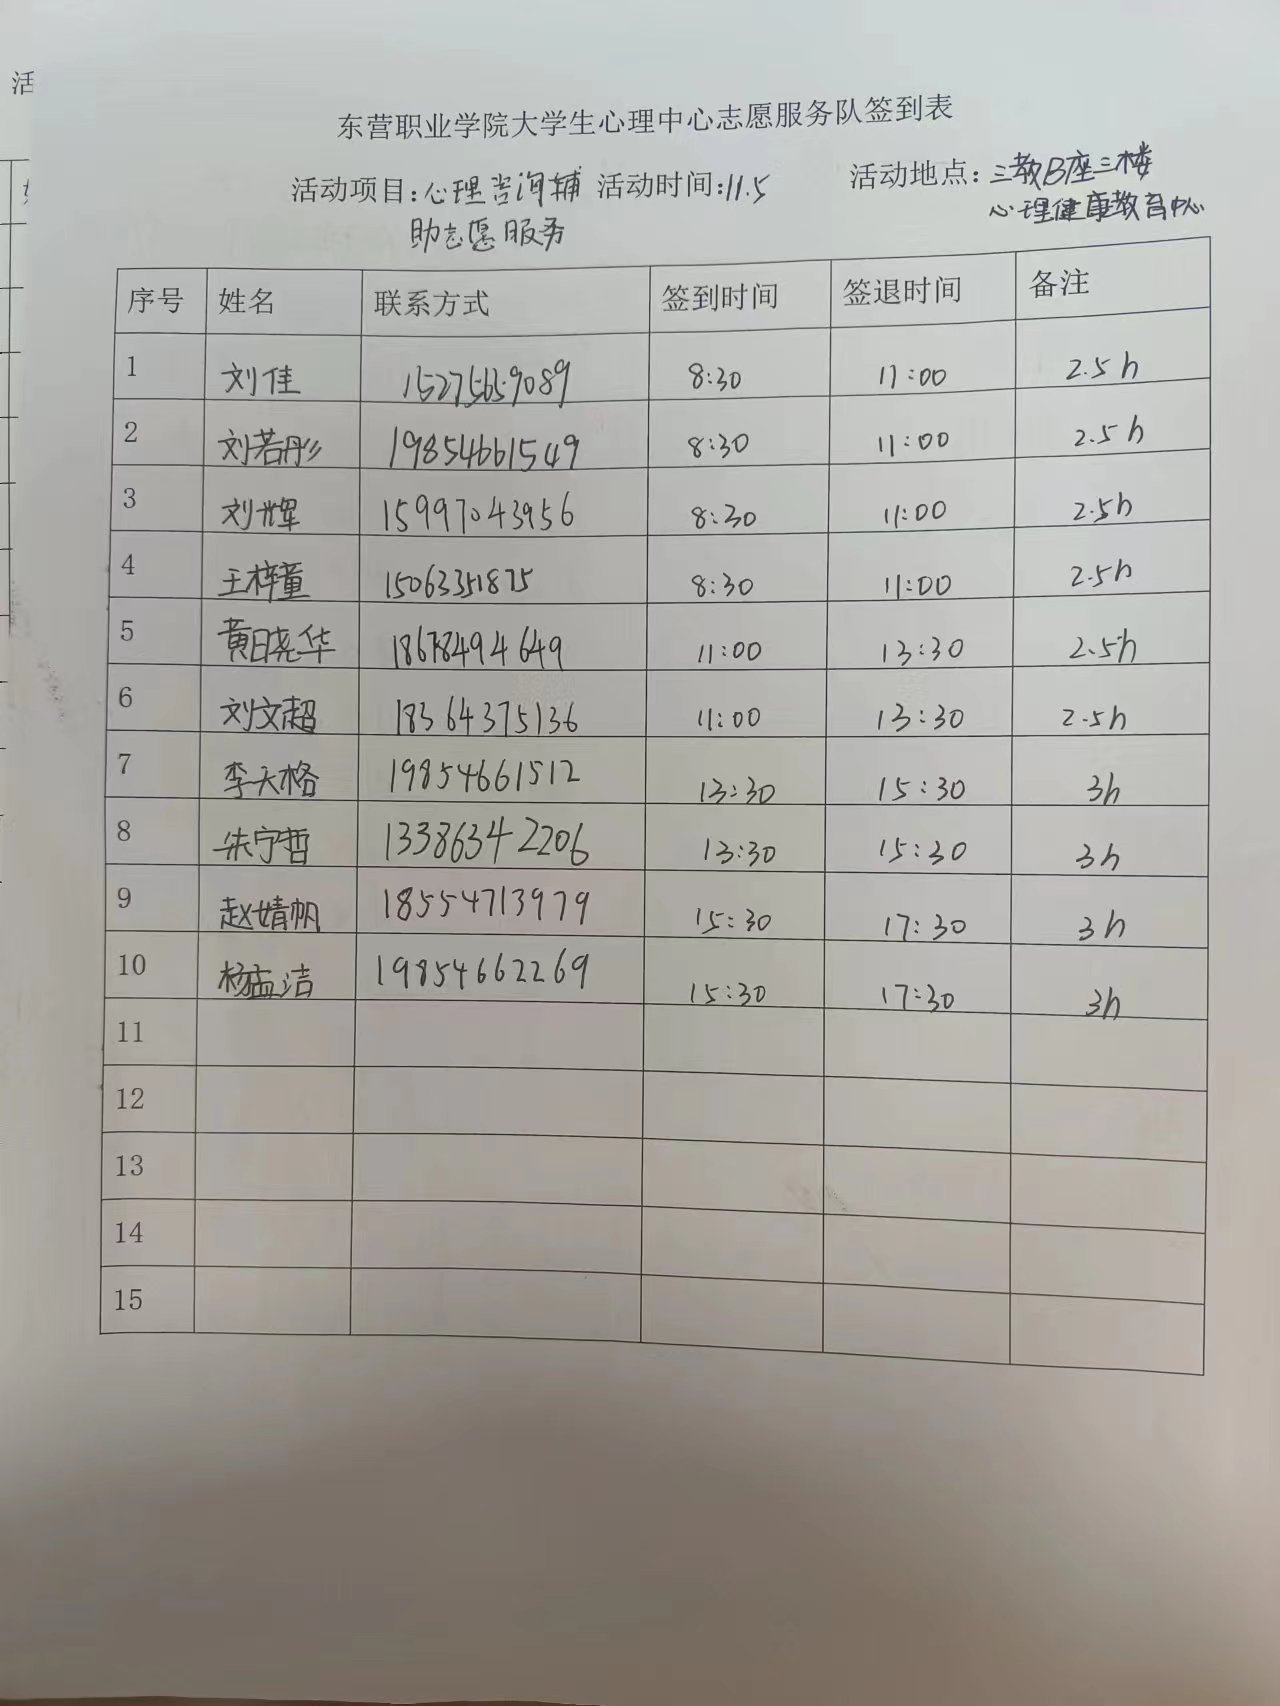 活
东营职业学院大学生心理中心志愿服务队签到表
活动项目:心理咨询辅 活动时间:11.5 活动地点:三教B座三楼
助志愿服务 心理健康教育中心
序号 姓名 联系方式 签到时间 签退时间 备注
1 刘佳 15275659089 8:30 11:00 2.5h
2 刘若彤 19854661549 8:30 11:00 2.5h
3 刘辉 15997043956 8:30 11:00 2.5h
4 王梓童 15063351875 8:30 11:00 2.5h
5 黄晓华 18678494649 11:00 13:30 2.5h
6 刘文超 18364375136 11:00 13:30 2.5h
7 李天格 19854661512 13:30 15:30 3h
8 朱宁哲 13386342206 13:30 15:30 3h
9 赵婧帆 18554713979 15:30 17:30 3h
10 杨孟洁 19854662269 15:30 17:30 3h
11
12
13
14
15